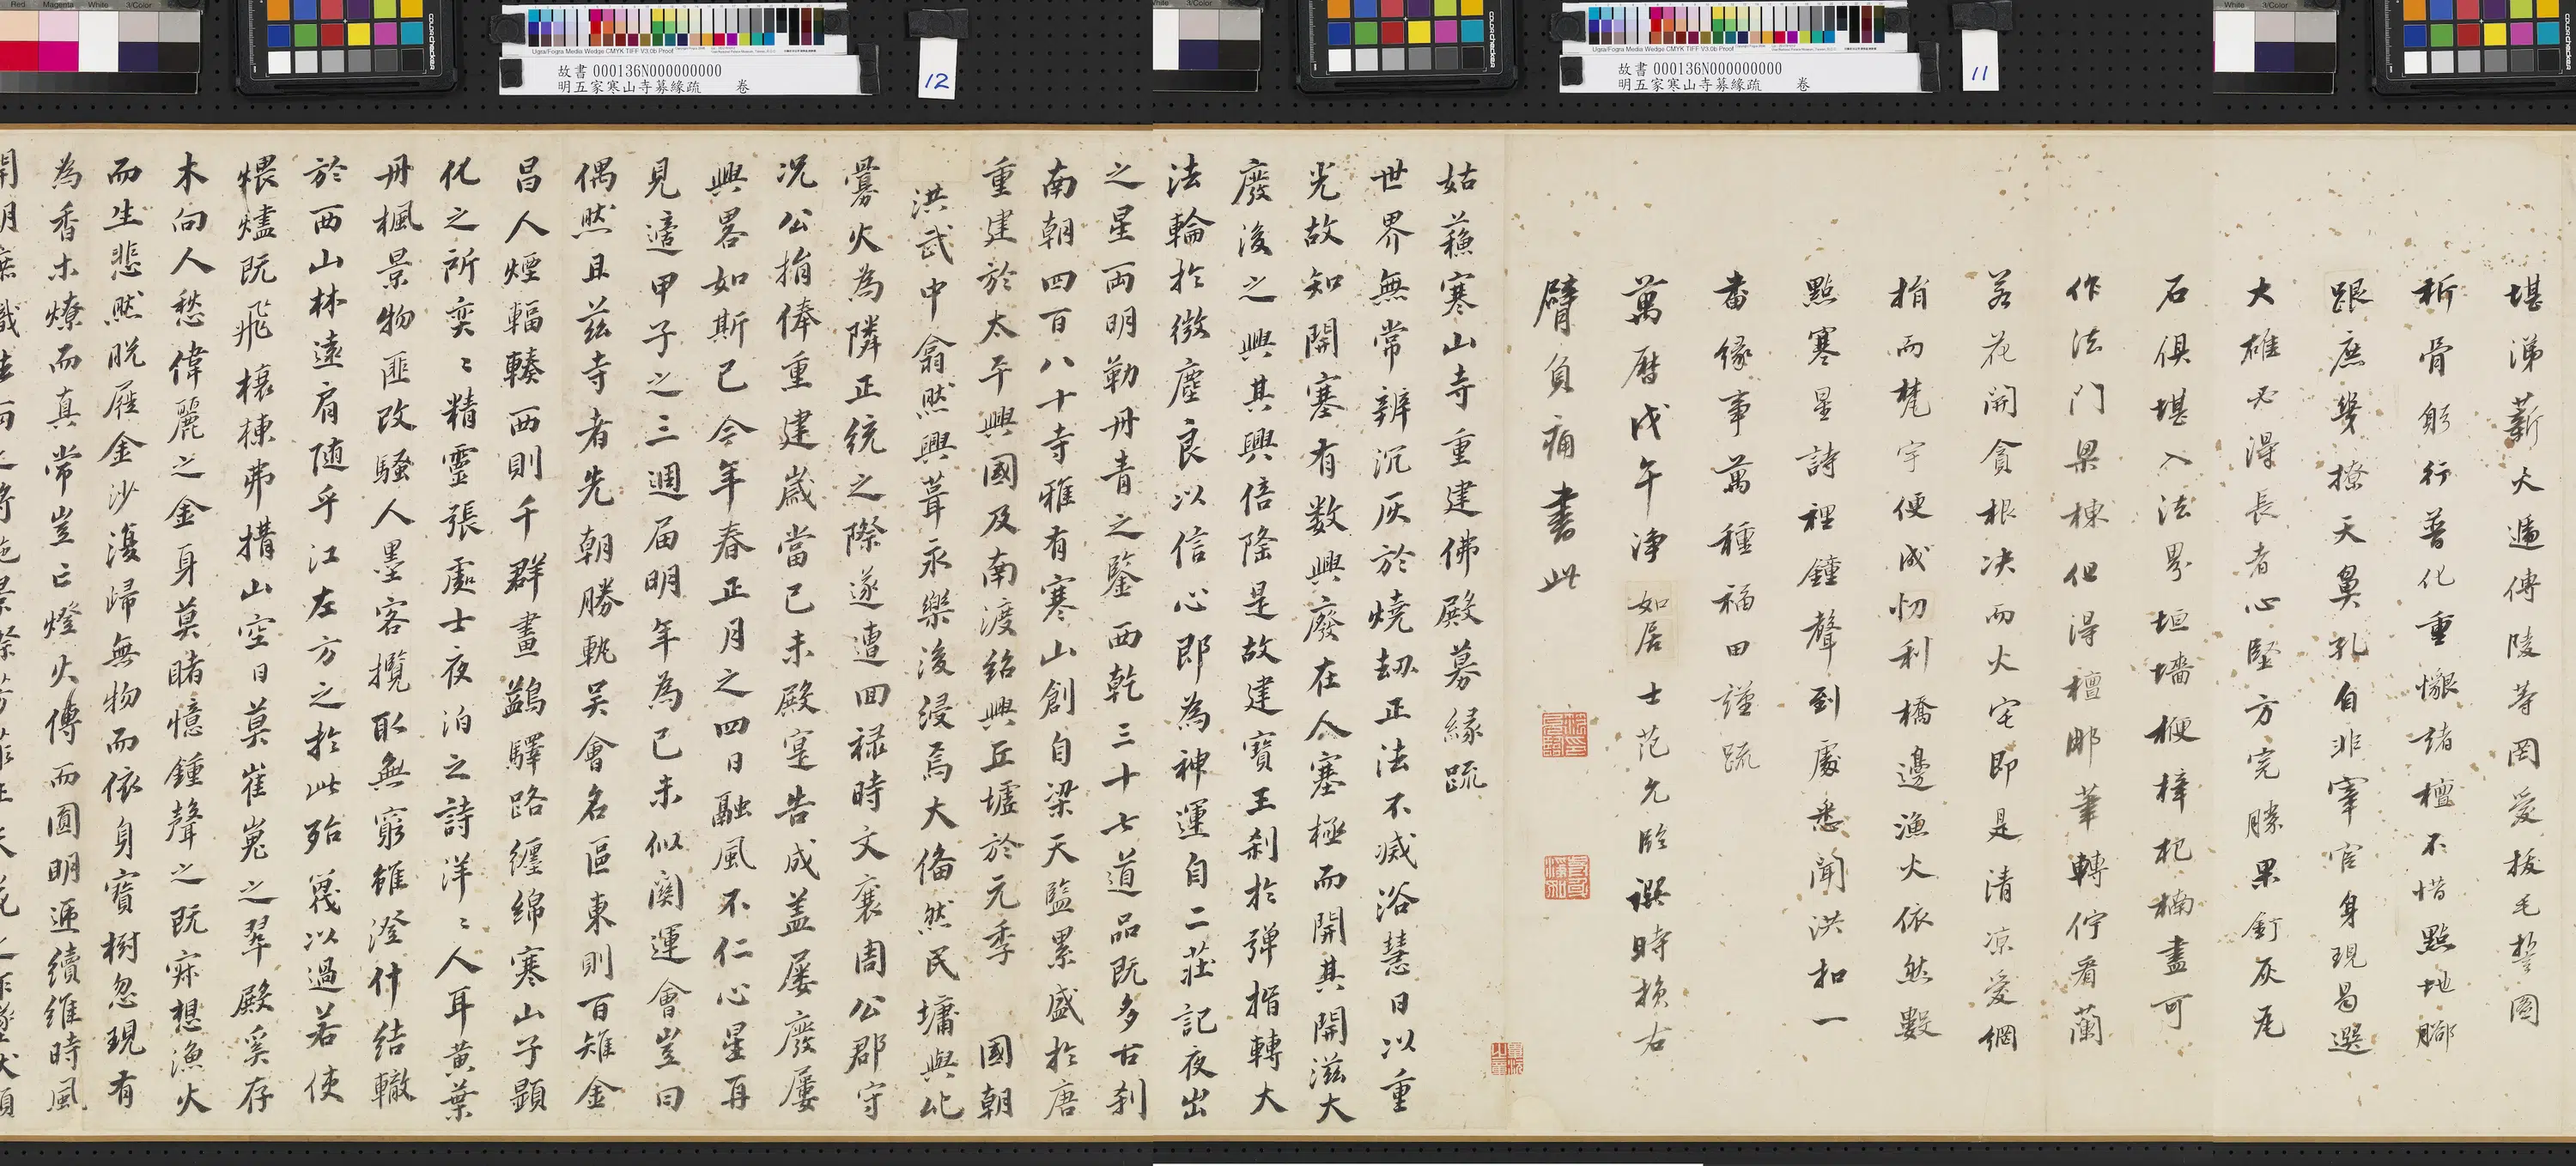 故書 000136N000000000
明五家寒山寺募緣疏 卷
12
故書 000136N000000000
明五家寒山寺募緣疏 卷
11
堪涕薪火遞傳陵等罔愛拔毛誓圖
斫骨躬行普化重懇諸檀不惜點地腳
跟庶幾撩天鼻孔自非宰官身現曷選
大雄必得長者心堅方完勝果釘灰瓦
石俱堪入法界垣墻梗梓杞楠盡可
作法門梁棟但得檀那筆轉佇看蘭
若花開貪根決而火宅即是清涼愛網
捐而梵宇便成忉利橋邊漁火依然數
點寒星詩裡鍾聲到處悉聞洪扣一
番緣事萬種福田謹疏
萬曆戊午淨如居士范允臨譔時損右
臂負痛書此
姑蘇寒山寺重建佛殿募緣疏
世界無常辨沉灰於燒劫正法不滅浴慧日以重
光故知開塞有數興廢在人塞極而開其開滋大
廢後之興其興倍隆是故建寶王剎於彈指轉大
法輪於微塵良以信心即為神運自二莊記夜出
之星兩明勒丹青之鑒西乾三十七道品既多古剎
南朝四百八十寺雅有寒山創自梁天監累盛於唐
重建於太平興國及南渡紹興丘墟於元季 國朝
洪武中翕然興葺永樂後浸焉大備然民墉與比
爨火為隣正統之際遂遭回祿時文襄周公郡守
況公捐俸重建歲當己未殿寔告成盖屡廢屡
興畧如斯已今年春正月之四日融風不仁心星再
見適甲子之三週届明年為己未似関運會豈曰
偶然且茲寺者先朝勝軌吴會名區東則百雉金
昌人煙輻輳西則千群畫鷁驛路纏綿寒山子顕
化之所奕ミ精靈張處士夜泊之詩洋ミ人耳黄葉
丹楓景物匪改騷人墨客攬取無窮雖澄什結轍
於西山林遠肩随乎江左方之於此殆蔑以過若使
煨燼既飛榱棟弗搆山空日莫崔嵬之翠殿奚存
木向人愁偉麗之金身莫睹憶鍾聲之既寂想漁火
而生悲然脱屣金沙復歸無物而依身寶樹忽現有
為香木燎而真常豈亡燈火傳而圓明逓續維時風